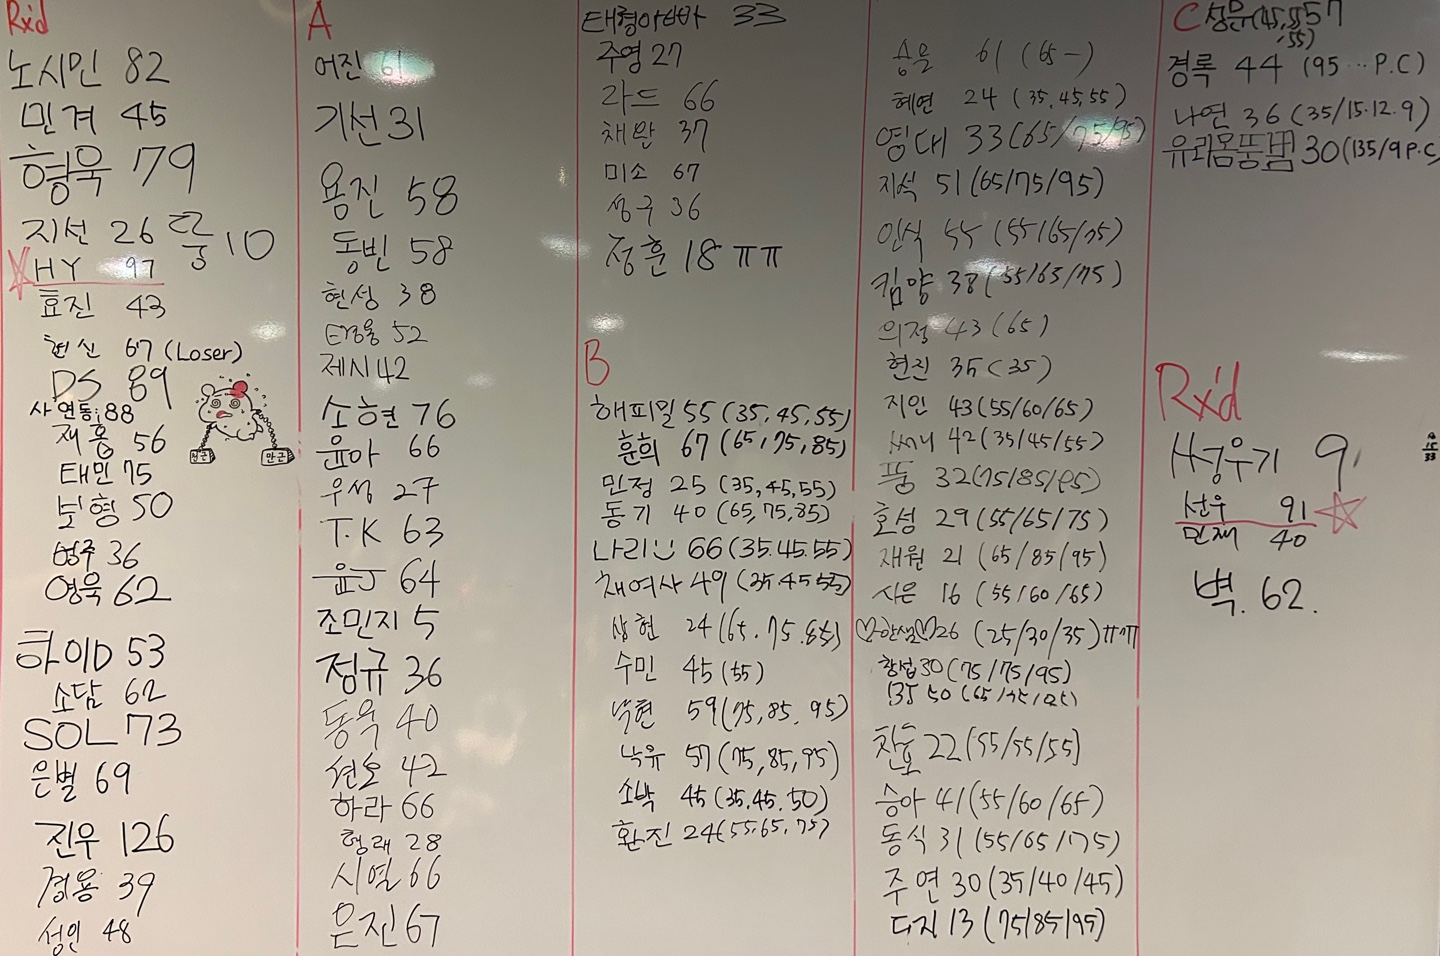 Rx'd
노시민 82
민겨 45
형욱 79
지선 26 등 10
HY 97
효진 43
현신 67 (Loser)
DS 89
사연동 88
재홍 56
태민 75
보형 50
병주 36
영욱 62
하이D 53
소담 62
SOL 73
은별 69
진우 126
경용 39
성인 48
천근 만근
A
어진 61
기선 31
용진 58
동빈 58
현성 38
52
제시 42
소현 76
윤아 66
우성 27
T.K 63
윤J 64
조민지 5
정규 36
동욱 40
선호 42
하라 66
형래 28
시열 66
은진 67
태형아빠 33
주영 27
라드 66
채완 37
미소 67
성구 36
정훈 18 ㅠㅠ
B
해피밀 55 (35, 45, 55)
훈희 67 (65, 75, 85)
민정 25 (35, 45, 55)
동기 40 (65, 75, 85)
나리 66 (35.45.55)
채여사 49 (35.45.55)
상현 24 (65.75.85)
수민 45 (55)
낙현 59 (75, 85, 95)
낙유 57 (75, 85, 95)
소박 45 (35.45.50)
환진 24 (55.65.75)
승을 61 (65-)
혜연 24 (35, 45, 55)
영대 33 (65/75/95)
지석 51 (65/75/95)
인식 55 (55/65/75)
킴양 38 (55/65/75)
의정 43 (65)
현진 35 (35)
지인 43 (55/60/65)
써니 42 (35/45/55)
뚱 32 (75/85/95)
호성 29 (55/65/75)
재원 21 (65/85/95)
시은 16 (55/60/65)
♡한솔♡ 26 (25/30/35) ㅠㅠ
창섭 30 (75/75/95)
50
찬호 22 (55/55/55)
승아 41 (55/60/65)
동식 31 (55/65/75)
주연 30 (35/40/45)
디지 13 (75/85/95)
C
성문 (45, 55, 55) 57
경록 44 (95 ... P.C)
나연 36 (35/15.12.9)
유리몸뚱 30 (135/9 P.C)
Rx'd
서경우기 91
선우 91
민재 40
벽. 62.